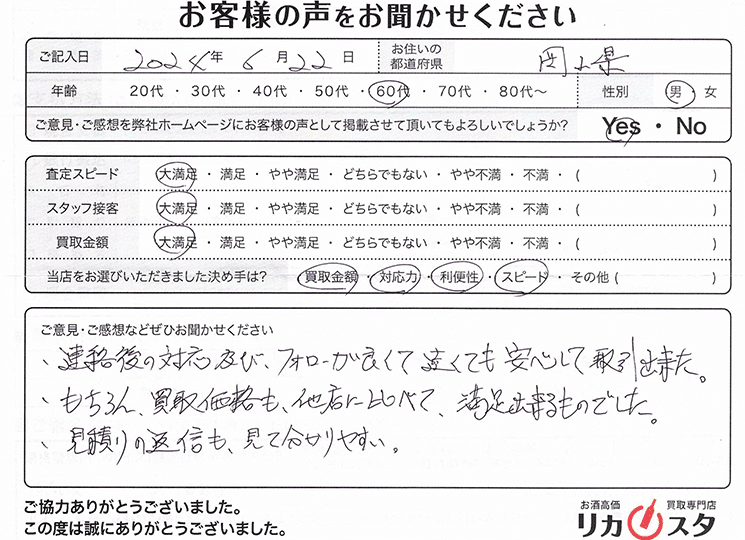 お客様の声をお聞かせください
ご記入日 2024年 6月 22日 お住いの都道府県 岡山県
年齢 20代 ・ 30代 ・ 40代 ・ 50代 ・ 60代 ・ 70代 ・ 80代〜 性別 男 ・ 女
ご意見・ご感想を弊社ホームページにお客様の声として掲載させて頂いてもよろしいでしょうか? Yes ・ No
査定スピード 大満足 ・ 満足 ・ やや満足 ・ どちらでもない ・ やや不満 ・ 不満 ・ ( )
スタッフ接客 大満足 ・ 満足 ・ やや満足 ・ どちらでもない ・ やや不満 ・ 不満 ・ ( )
買取金額 大満足 ・ 満足 ・ やや満足 ・ どちらでもない ・ やや不満 ・ 不満 ・ ( )
当店をお選びいただきました決め手は? 買取金額 ・ 対応力 ・ 利便性 ・ スピード ・ その他 ( )
ご意見・ご感想などぜひお聞かせください
、連絡後の対応及び、フォローが良くて遠くても安心して取引出来た。
・もちろん、買取価格も、他店に比べて、満足出来るものでした。
、見積りの返信も、見て分かりやすい。
ご協力ありがとうございました。
この度は誠にありがとうございました。
お酒高価 買取専門店
リカスタ